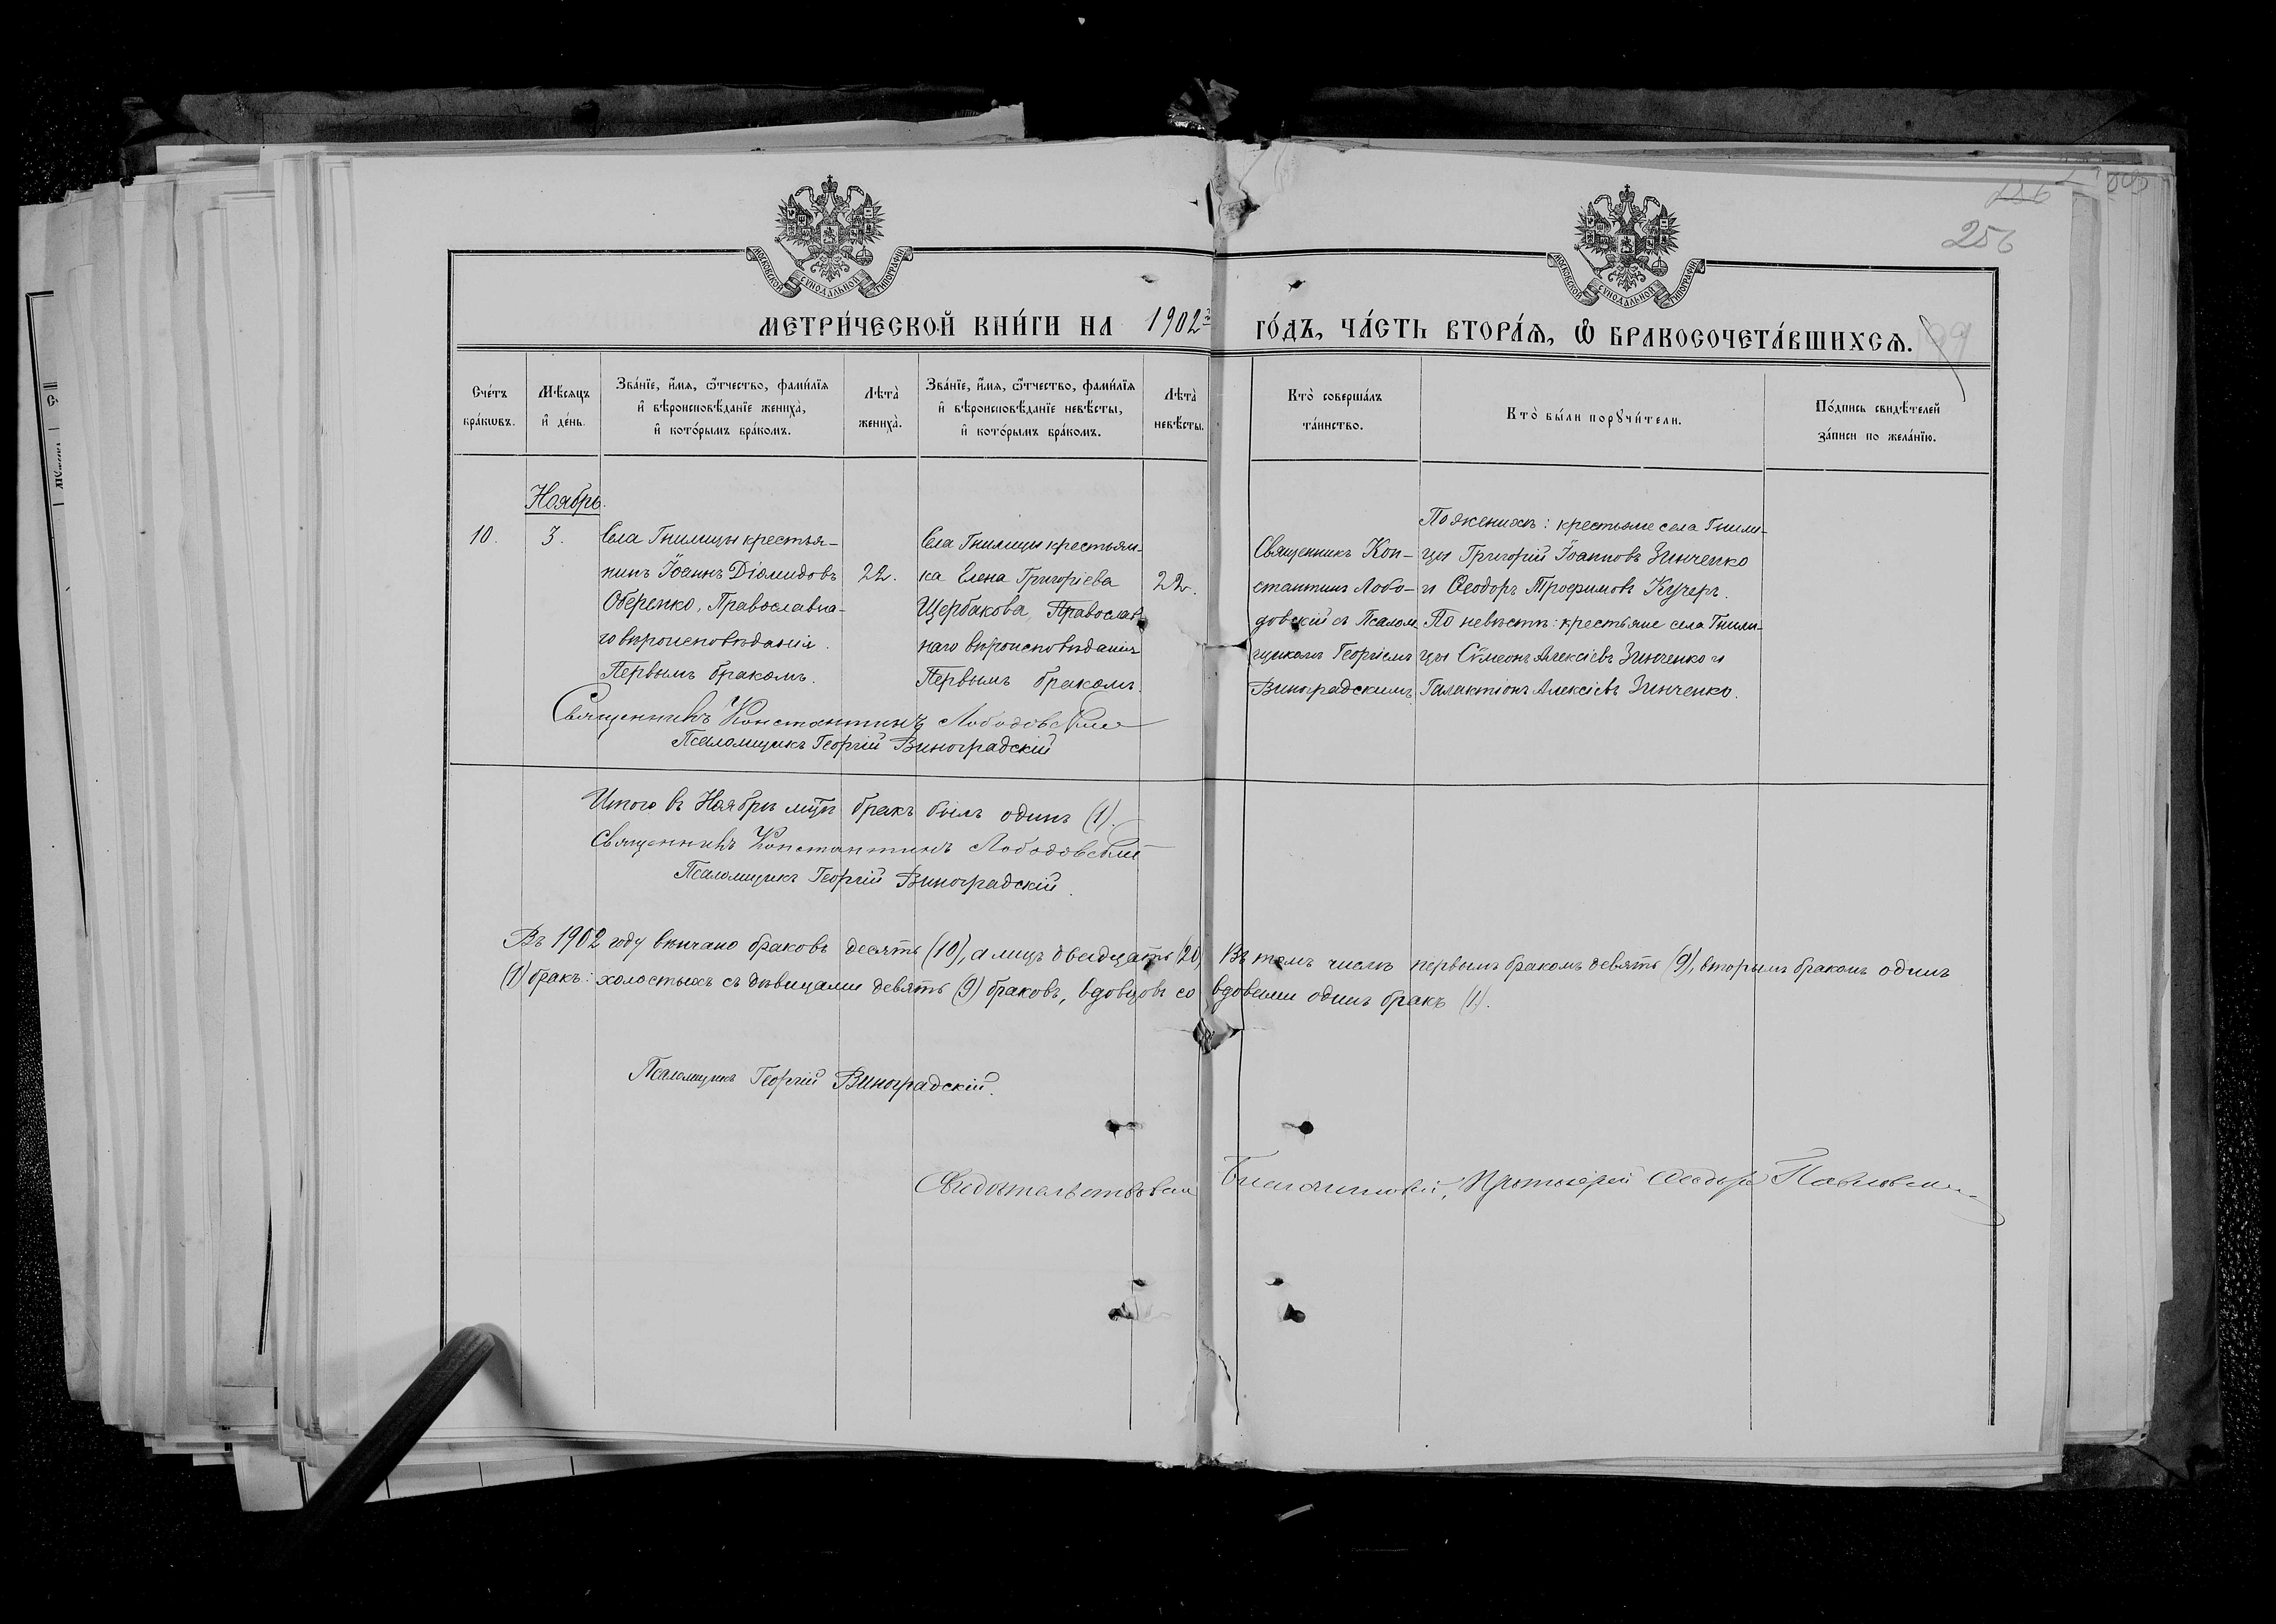 256
МОСКОВСКОЙ СУНОДАЛЬНОЙ ТИПОГРАФІИ
МОСКОВСКОЙ СУНОДАЛЬНОЙ ТИПОГРАФІИ
МЕТРИ́ЧЕСКОЙ КНИ́ГИ НА 1902й ГО́ДЪ, ЧА́СТЬ ВТОРА́Ѧ, Ѽ БРАКОСОЧЕТА́ВШИХСѦ.
Сче́тъ бра́кѡвъ.
Мѣ́сяцъ и҆ де́нь.
Зва́нїе, и҆́мѧ, ѻ҆́тчество, фами́лїѧ и҆ вѣроисповѣ́данїе жениха̀, и҆ кото́рымъ бра́комъ.
Лѣта̀ жениха̀.
Зва́нїе, и҆́мѧ, ѻ҆́тчество, фами́лїѧ и҆ вѣроисповѣ́данїе невѣ́сты, и҆ кото́рымъ бра́комъ.
Лѣта̀ невѣ́сты.
Кто̀ соверша́лъ та́инство.
Кто̀ бы́ли порꙋчи́тели.
По́дпись свидѣ́телей за́писи по жела́нїю.
Ноябрь.
10.
3.
Села Гнилицы крестья-
нинъ Іоаннъ Діомидовъ
Оберенко, Православна-
го вѣроисповѣданія.
Первымъ бракомъ.
22.
Села Гнилицы крестьян-
ка Елена Григоріева
Щербакова, Православ-
наго вѣроисповѣданія
Первымъ бракомъ.
22.
Священникъ Кон-
стантинъ Лобо-
довскій съ Псалом-
щикомъ Георгіемъ
Виноградскимъ.
По женихѣ: крестьяне села Гнили-
цы Григорій Іоанновъ Зинченко
и Ѳеодоръ Трофимовъ Кучеръ.
По невѣстѣ: крестьяне села Гнили-
цы Сѵмеонъ Алексіевъ Зинченко и
Галактіонъ Алексіевъ Зинченко.
Священникъ Константинъ Лободовскій
Псаломщикъ Георгій Виноградскій
Итого въ Ноябрѣ мцѣ бракъ былъ одинъ (1).
Священникъ Константинъ Лободовскій
Псаломщикъ Георгій Виноградскій.
Въ 1902 году вѣнчано браковъ десять (10), а лицъ двадцать (20) Въ томъ числѣ первымъ бракомъ девять (9), вторымъ бракомъ одинъ
(1) бракъ: холостыхъ съ дѣвицами девять (9) браковъ, вдовцовъ со вдовами одинъ бракъ (1).
Псаломщикъ Георгій Виноградскій.
Свидѣтельствовалъ Благочинный, Протоіерей Ѳеодоръ